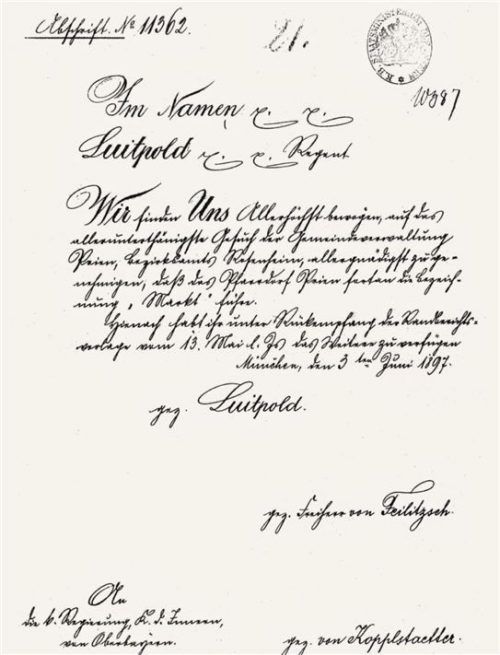 Abschrift. No 11362.
21.
10987
Im Namen p. p.
Luitpold p. p. Regent
Wir finden Uns Allerhöchst bewogen, auf das
alleruntertänigste Gesuch der Gemeindeverwaltung
Prien, Bezirksamts Rosenheim, allergnädigst zu ge-
nehmigen, daß das Pfarrdorf Prien fortan die Bezeich-
nung „Markt“ führe.
Hienach habt ihr unter Rückempfang der Randberichts-
vorlage vom 13. Mai l. Js das Weitere zu verfügen
München, den 3ten Juni 1897.
gez. Luitpold.
gez. Freiherr von Feilitzsch.
An
die k. Regierung, K. d. Innern,
von Oberbayern.
gez. von Kopplstaetter.